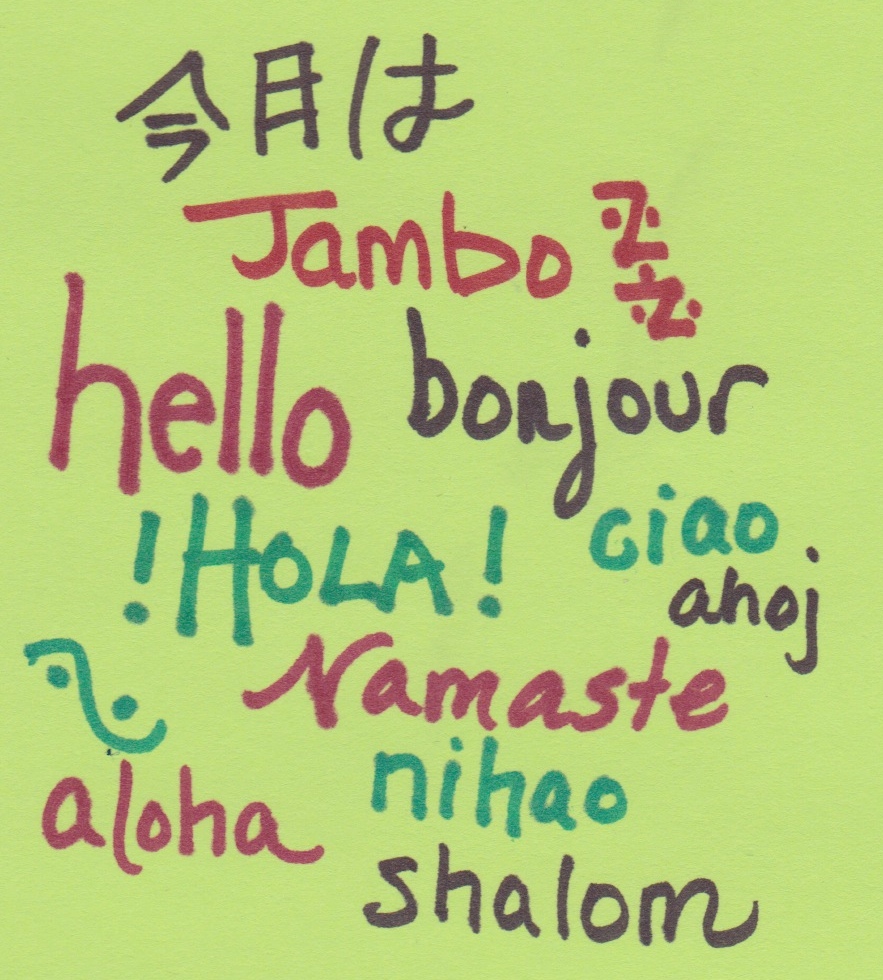 今月は
Jambo
hello bonjour
!HOLA! ciao
ahoj
Namaste
nihao
aloha
shalom